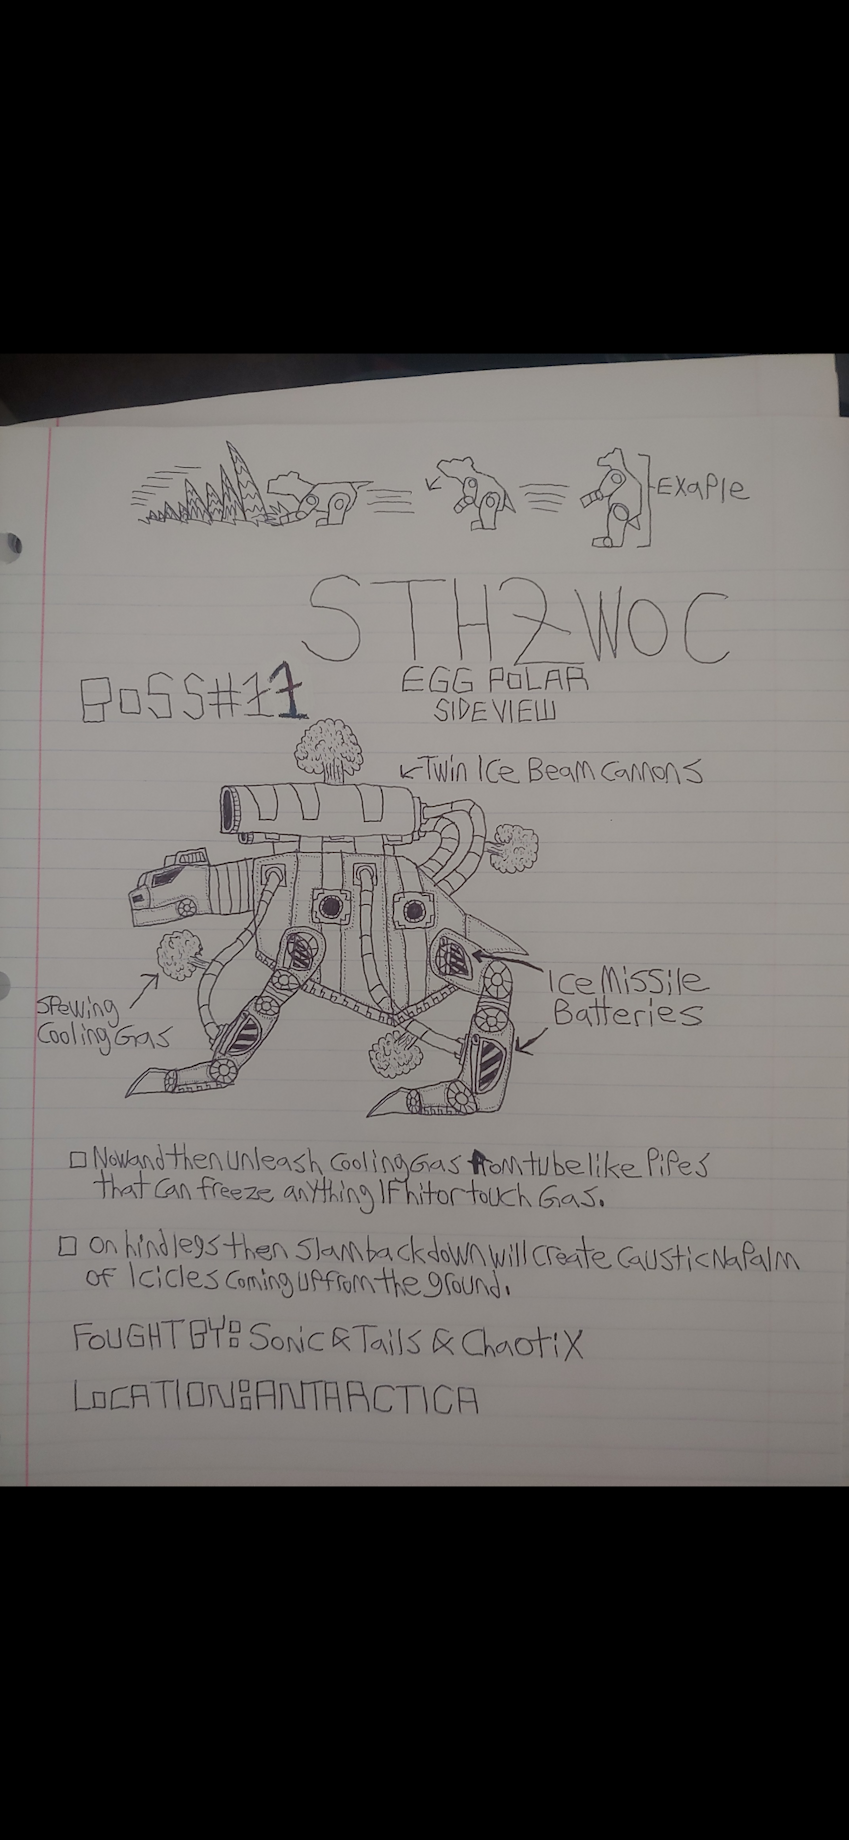 EXaPle
STH2WOC
BoSS#11
EGG POLAR
SIDE VIEW
Twin Ice Beam Cannons
Ice Missile
Batteries
Spewing
Cooling Gas
Now and then unleash Cooling Gas from tube like Pipes
that can freeze anything IF hit or touch Gas.
on hind legs then Slam back down will create Caustic Napalm
of Icicles coming up from the ground.
FOUGHT BY: Sonic & Tails & Chaotix
LOCATION: ANTARCTICA